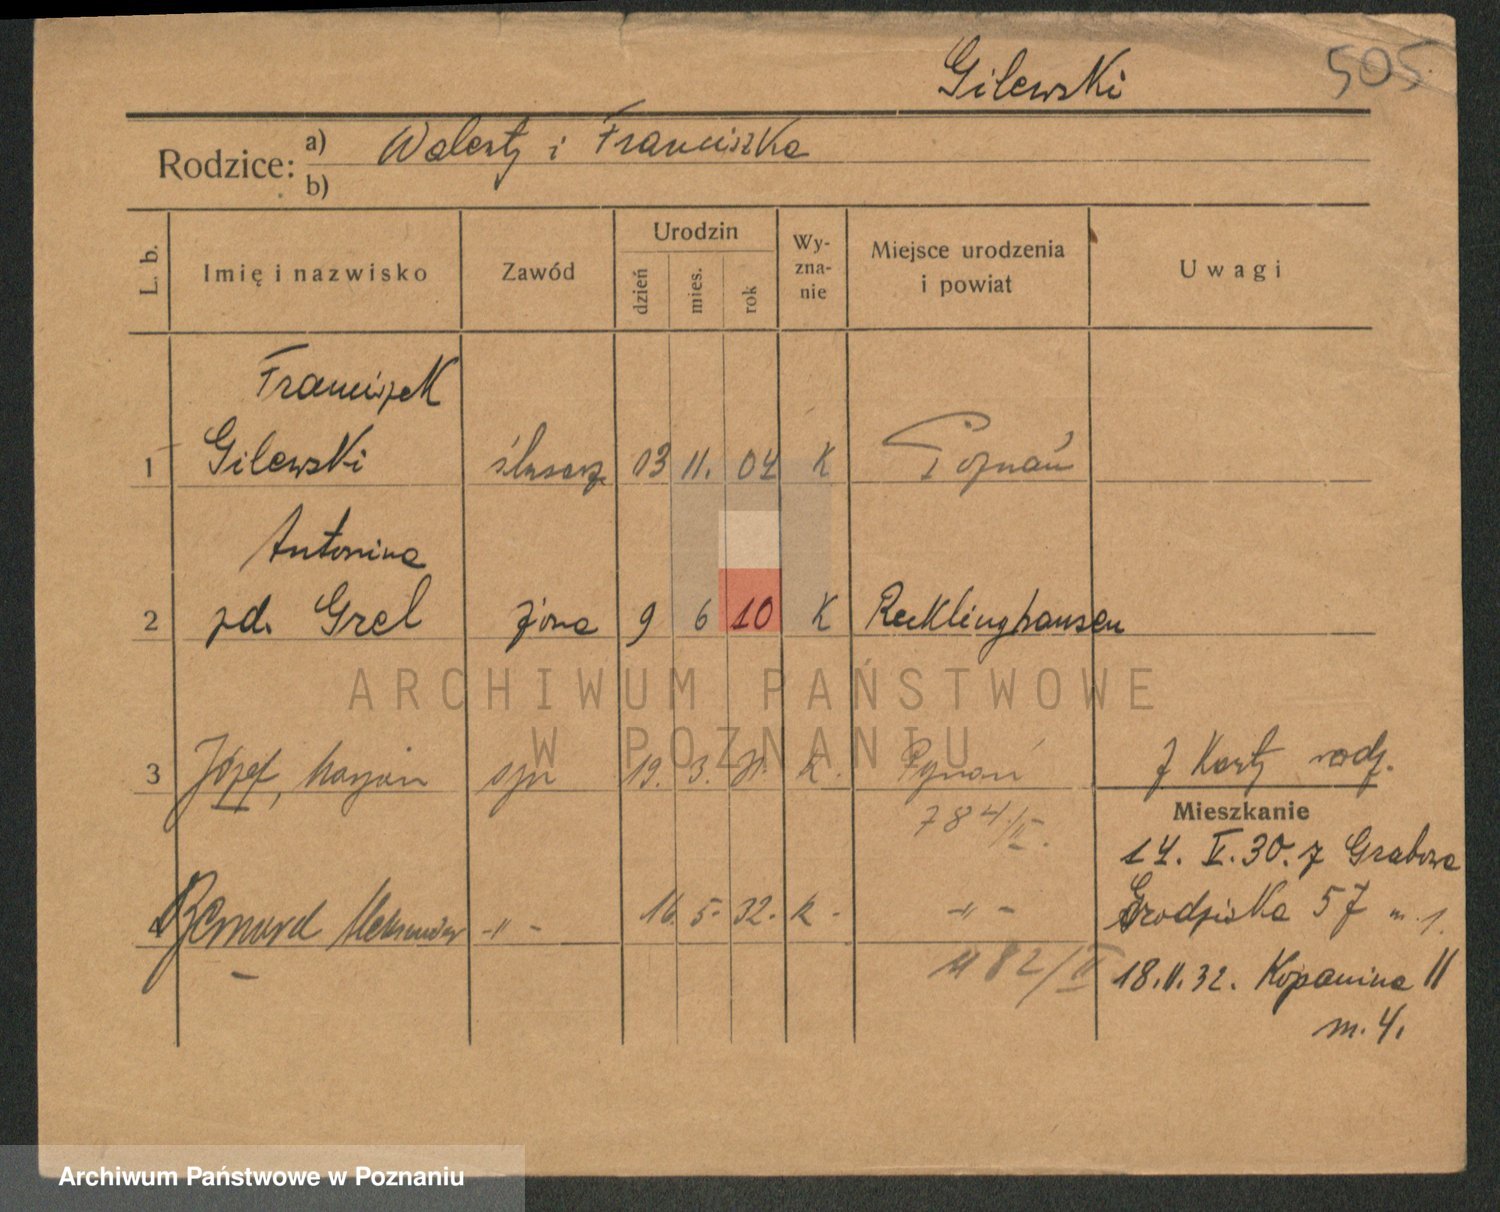 Gilewski
505
Rodzice: a) Walenty i Franciszka
b)
L. b. Imię i nazwisko Zawód Urodzin dzień mies. rok Wy-zna-nie Miejsce urodzenia i powiat Uwagi
Franciszek
1 Gilewski ślusarz 03 11. 04 K Poznań
Antonina
2 zd. Grel żona 9 6 10 K Recklinghausen
ARCHIWUM PAŃSTWOWE
W POZNANIU
3 Józef, Marjan syn 19. 3. 31. k. Poznań z Karty rodz.
784/II.
Mieszkanie
14. V. 30. z Grabowa
4 Bernard Aleksander -"- 16. 5. 32. k. -"- Grodziska 57 m. 1.
1182/II 18. II. 32. Kopanina 11
m. 4.
Archiwum Państwowe w Poznaniu